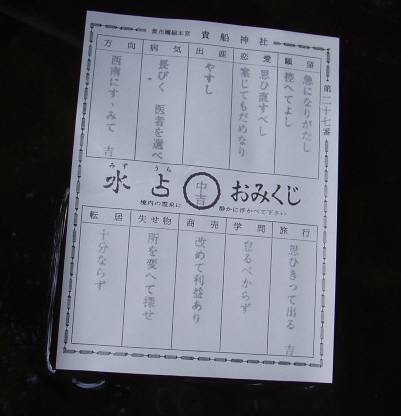 貴布禰総本宮 貴船神社
第二十七番
願望
急になりがたし
控へてよし
恋愛
思ひ直すべし
案じてもだめなり
出産
やすし
病気
長びく 医者を選べ
方向
西南にすゝみて 吉
みず うら
水占 中吉 おみくじ
境内の霊泉に 静かに浮かべて下さい
旅行
思ひきって出る 吉
学問
怠るべからず
商売
改めて利益あり
失せ物
所を変へて探せ
転居
十分ならず